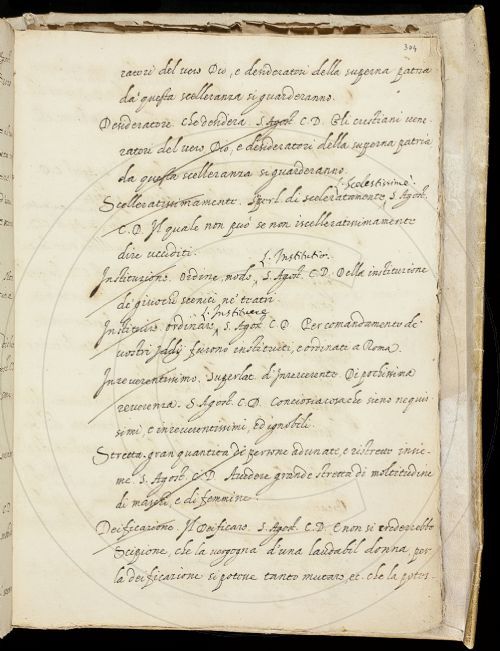 304
ratori del vero Dio, e desideratori della superna patria
da questa scelleranza si guarderanno.
Desideratore. Che desidera. S. Agost. C. D. Gli cristiani vene-
ratori del vero Dio, e desideratori della superna patria
da questa scelleranza si guarderanno.
L. Scelestissime.
Scelleratissimamente. Superl. di sceleratamente. S. Agost.
C. D. Il quale non può se non iscelleratissimamente
dire uccidi ti.
L. Institutio.
Instituzione. Ordine, modo, S. Agost. C. D. Della instituzione
de' giuochi scenici ne' teatri.
L. Instituere
Instituire ordinare, S. Agost. C. D. Per comandamento de'
vostri Iddij furono instituiti, e ordinati a Roma.
Inreverentissimo. Superlat. d'Inreverente. Di pochissima
reverenza. S. Agost. C. D. Conciosiacosa che sieno nequis-
simi, e inreverentissimi, ed ignobili.
Stretta, gran quantità di persone adunate, e ristrette insie-
me. S. Agost. C. D. Avvedere grande stretta di moltitudine
di maschi, e di femmine.
Deificazione. Il Deificare. S. Agost. C. D. E non si crederebbe
Scipione, che la vergogna d'una laudabil donna, per
la deificazione si potette tanto mutare, etc. che la potes-